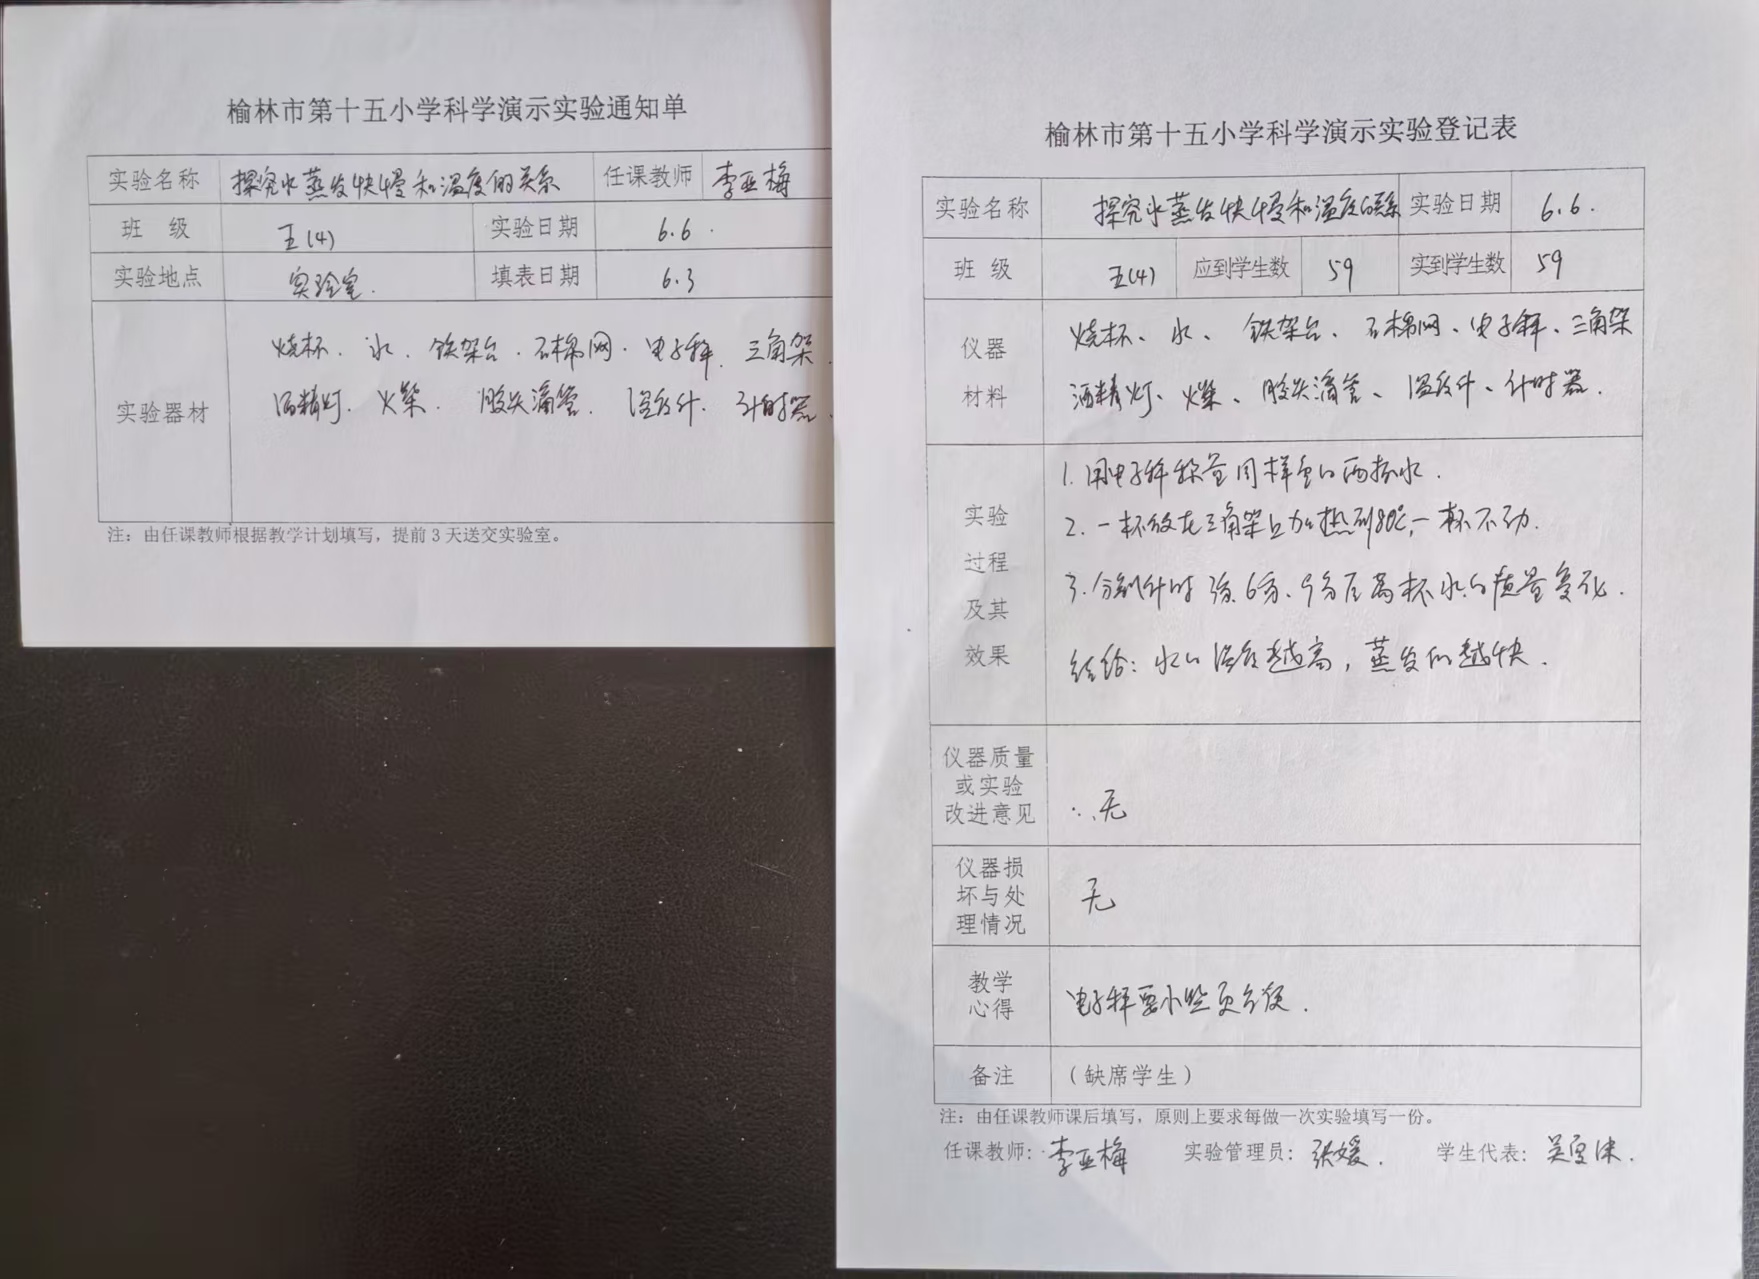 榆林市第十五小学科学演示实验通知单
实验名称 探究水蒸发快慢和温度的关系 任课教师 李亚梅
班 级 五(4) 实验日期 6.6.
实验地点 实验室. 填表日期 6.3
实验器材
烧杯、水、铁架台、石棉网、电子秤、三角架
酒精灯、火柴、胶头滴管、温度计、计时器、
注：由任课教师根据教学计划填写，提前3天送交实验室。
榆林市第十五小学科学演示实验登记表
实验名称 探究水蒸发快慢和温度的关系 实验日期 6.6.
班 级 五(4) 应到学生数 59 实到学生数 59
仪器
材料
烧杯、水、铁架台、石棉网、电子秤、三角架
酒精灯、火柴、胶头滴管、温度计、计时器.
实验
过程
及其
效果
1.用电子秤称量同样重的两杯水.
2.一杯放在三角架上加热到80℃,一杯不动.
3.分别计时3分、6分、9分后两杯水的质量变化.
结论：水的温度越高，蒸发的越快.
仪器质量
或实验
改进意见
无
仪器损
坏与处
理情况
无
教学
心得
电子秤要小些更方便.
备注
（缺席学生）
注：由任课教师课后填写，原则上要求每做一次实验填写一份。
任课教师：李亚梅 实验管理员：张媛. 学生代表：吴